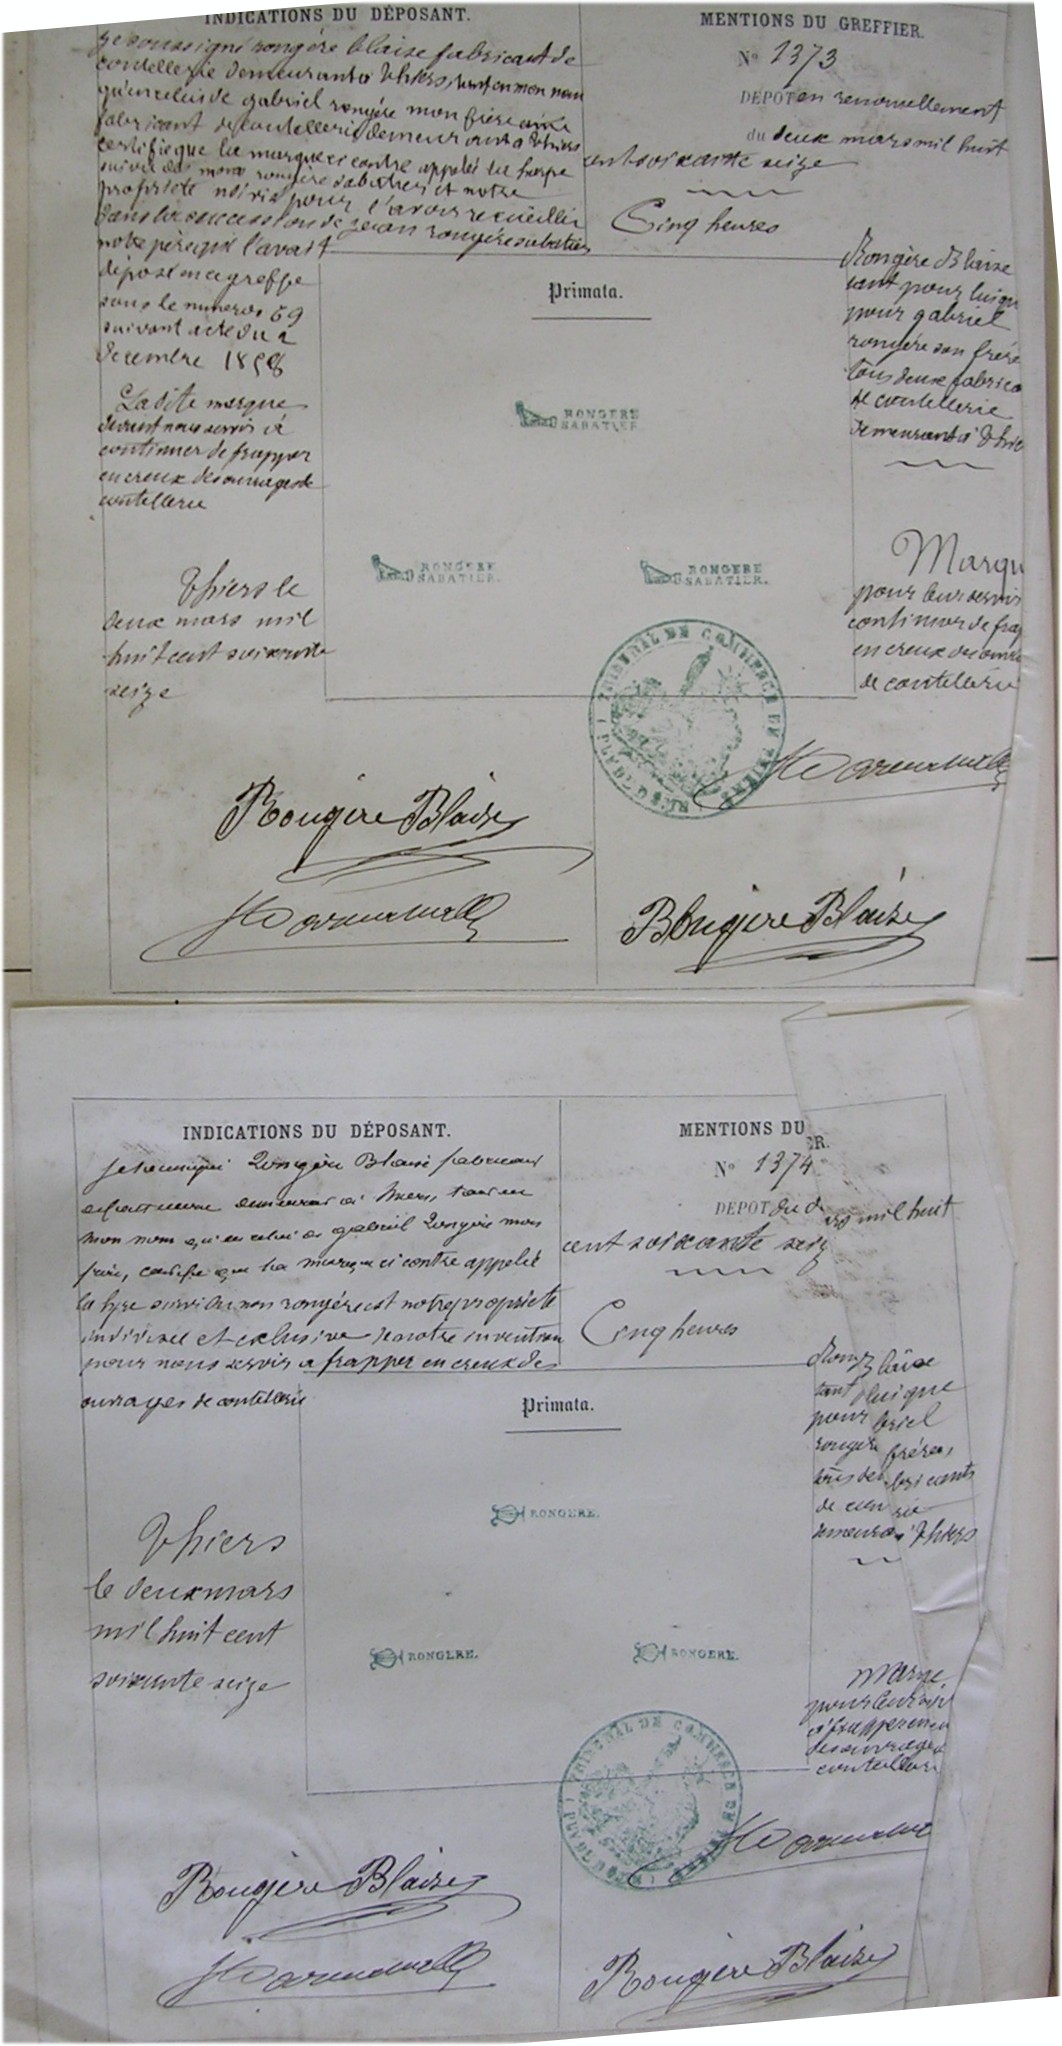 INDICATIONS DU DÉPOSANT.
Je soussigné rongére blaise fabricant de
coutellerie demeurant a thiers, tant en mon nom
qu'en celui de gabriel rongére mon frére ainé
fabricant de coutellerie demeurant a thiers
certifie que la marque ci contre appelée la harpe
suivie des mots rongére sabatier est notre
propriété indivise pour l'avoir recueillie
dans la succession de jean rongére sabatier
notre pére qui l'avait
déposé en ce greffe
sous le numero 69
suivant acte du 2
decembre 1858
La dite marque
devant nous servir à
continuer de frapper
en creux des ouvrages de
coutellerie
thiers le
deux mars mil
huit cent soixante
seize
MENTIONS DU GREFFIER.
N° 1373
DÉPOT en renouvellement
du deux mars mil huit
cent soixante seize
Cinq heures
Primata.
RONGERE
SABATIER
RONGERE
SABATIER.
RONGERE
SABATIER.
Rongère Blaise
tant pour lui qu
pour gabriel
rongére son frére
tous deux fabrica
de coutellerie
demeurant à thie
Marqu
pour leur servir
continuer de frap
en creux des ouvra
de coutellerie
TRIBUNAL DE COMMERCE DE THIERS
Rongère Blaise
Rongère Blaise
INDICATIONS DU DÉPOSANT.
Je soussigné Rongère Blaise fabricant
demeurant à thiers, tant en
mon nom qu'en celui de gabriel Rongère mon
frére, certifie que la marque ci contre appelée
la lyre suivi du nom rongére est notre propriété
indivisee et exclusive de notre invention
pour nous servir a frapper en creux des
ouvrages de coutellerie
Thiers
le deux mars
mil huit cent
soixante seize
MENTIONS DU
ER.
N° 1374
DEPOT du d
rs mil huit
cent soixante seiz
Cinq heures
Primata.
RONGERE.
RONGERE.
RONGERE.
Rong Blaise
tant lui que
pour briel
rongére fréres,
tous deu bricants
de cou rie
demeura à thiers
Marque
pour leur servir
a frapper en
des ouvrages
coutellerie
TRIBUNAL DE COMMERCE DE THIERS
Rongère Blaise
Rongère Blaise